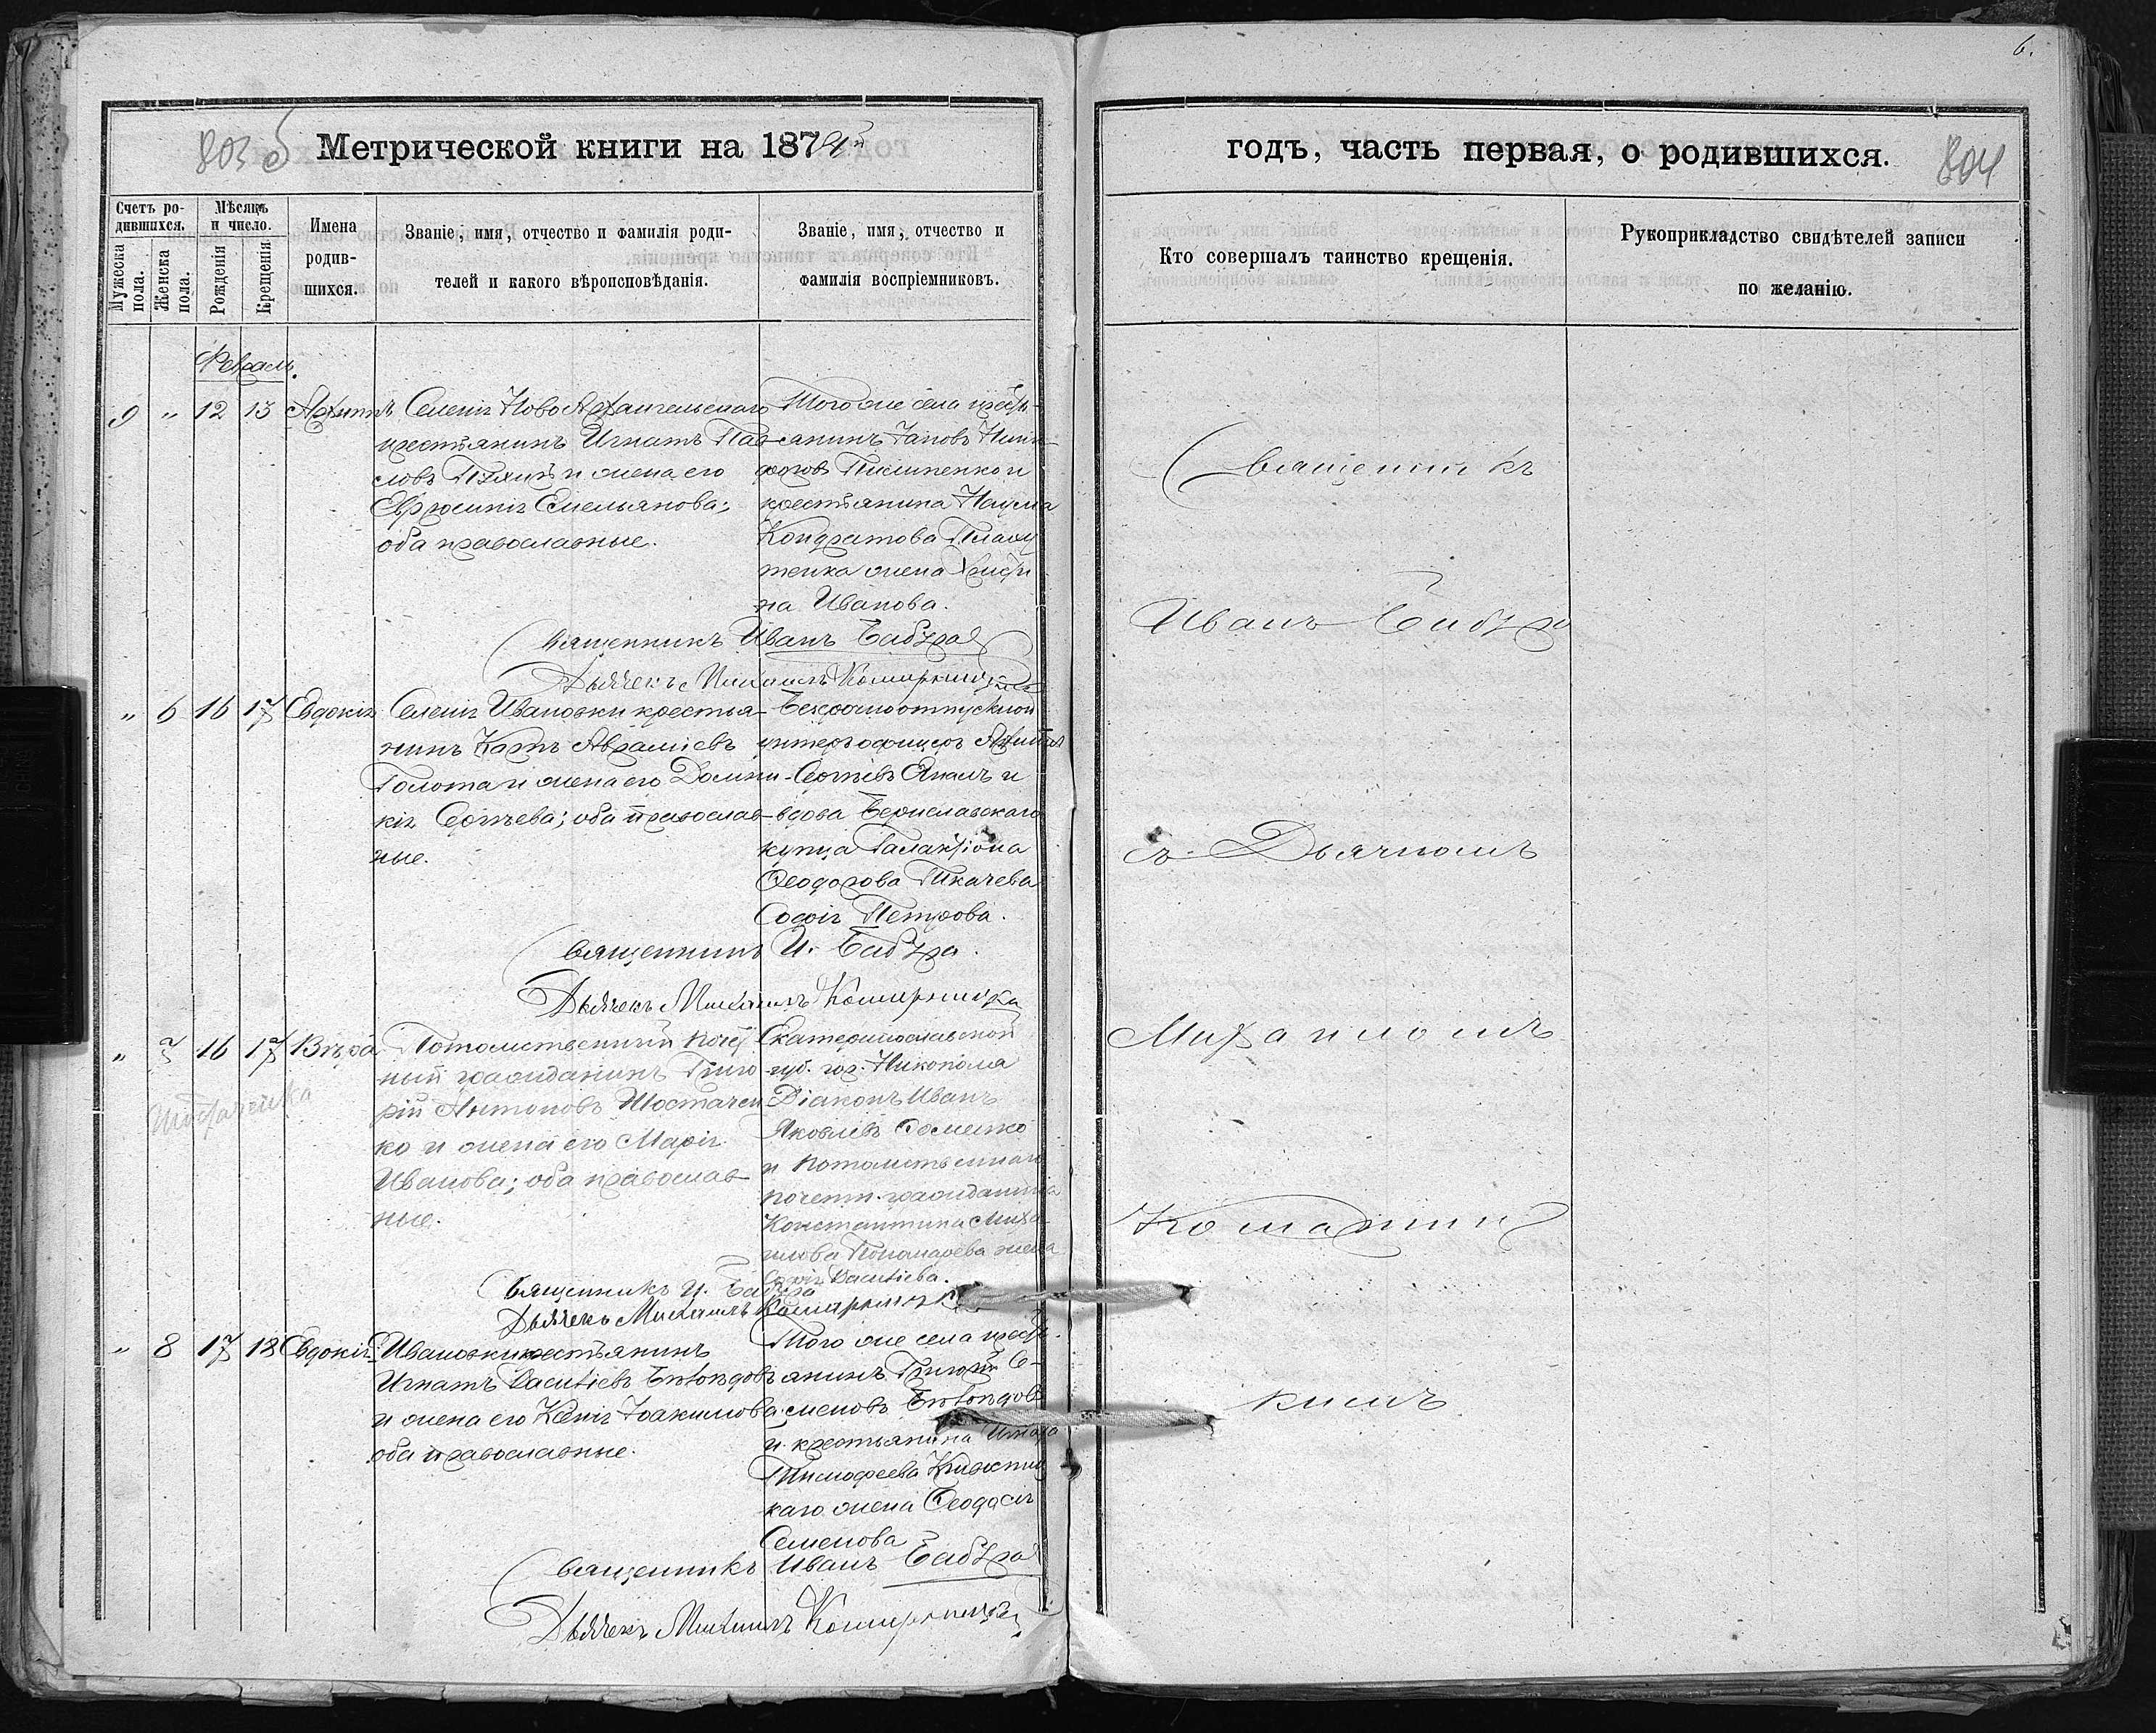 6.
803 об
Метрической книги на 1874й
годъ, часть первая, о родившихся.
804
Счетъ ро-
дившихся.
Мужеска
пола.
Женска
пола.
Мѣсяцъ
и число.
Рожденія
Крещенія
Имена
родив-
шихся.
Званіе, имя, отчество и фамилія роди-
телей и какого вѣроисповѣданія.
Званіе, имя, отчество и
фамилія воспріемниковъ.
Кто совершалъ таинство крещенія.
Рукоприкладство свидѣтелей записи
по желанію.
Февраль.
9 " 12 13 Архиппъ
Селенія Ново Архангельскаго
крестьянинъ Игнатъ Пав
ловъ и жена его
Евфросинія Емельянова;
оба православные.
Того же села кресть-
янинъ Іаковъ Ники
форовъ Пилипенко и
крестьянина Наума
Кондратова
жена Христи
на Иванова.
Священникъ Иванъ Бабура
Дьячекъ Михаилъ
" 6 16 17 Евдокія
Селенія Ивановки крестья
нинъ Карпъ Авраміевъ
Голота и жена его Домни
кія Сергѣева; оба православ
ные.
Безсрочноотпускной
унтеръ офицеръ
Сергѣевъ и
вдова Бериславскаго
купца Галактіона
Ѳеодорова Ткачева
Софія Петрова.
Священникъ И. Бабура.
Дьячекъ Михаилъ
" 7 16 17 Вѣра
Шостаченко
Потомственный почет
ный гражданинъ Григо
рій Антоновъ Шостачен
ко и жена его Марія
Иванова; оба православ
ные.
Екатеринославской
губ. гор. Никополя
Діаконъ Иванъ
Яковлевъ Ѳоменко
и потомственнаго
почетн. гражданина
Константина Миха
илова Пономарева жена
Софія Василіева.
Священникъ И. Бабура
Дьячекъ Михаилъ
" 8 17 18 Евдокія
С. Ивановки крестьянинъ
Игнатъ Василіевъ
и жена его Ксенія Іоакимова
оба православные.
Того же села кресть-
янинъ Григорій Се-
меновъ
и крестьянина
Тимофеева
каго жена Ѳеодосія
Семенова
Священникъ Иванъ Бабура
Дьячекъ Михаилъ
Священникъ
Иванъ Бабура
съ Дьячкомъ
Михаиломъ
кимъ